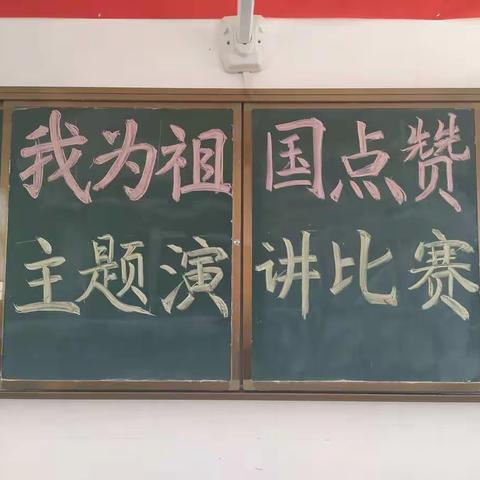 我为祖国点赞
主题演讲比赛